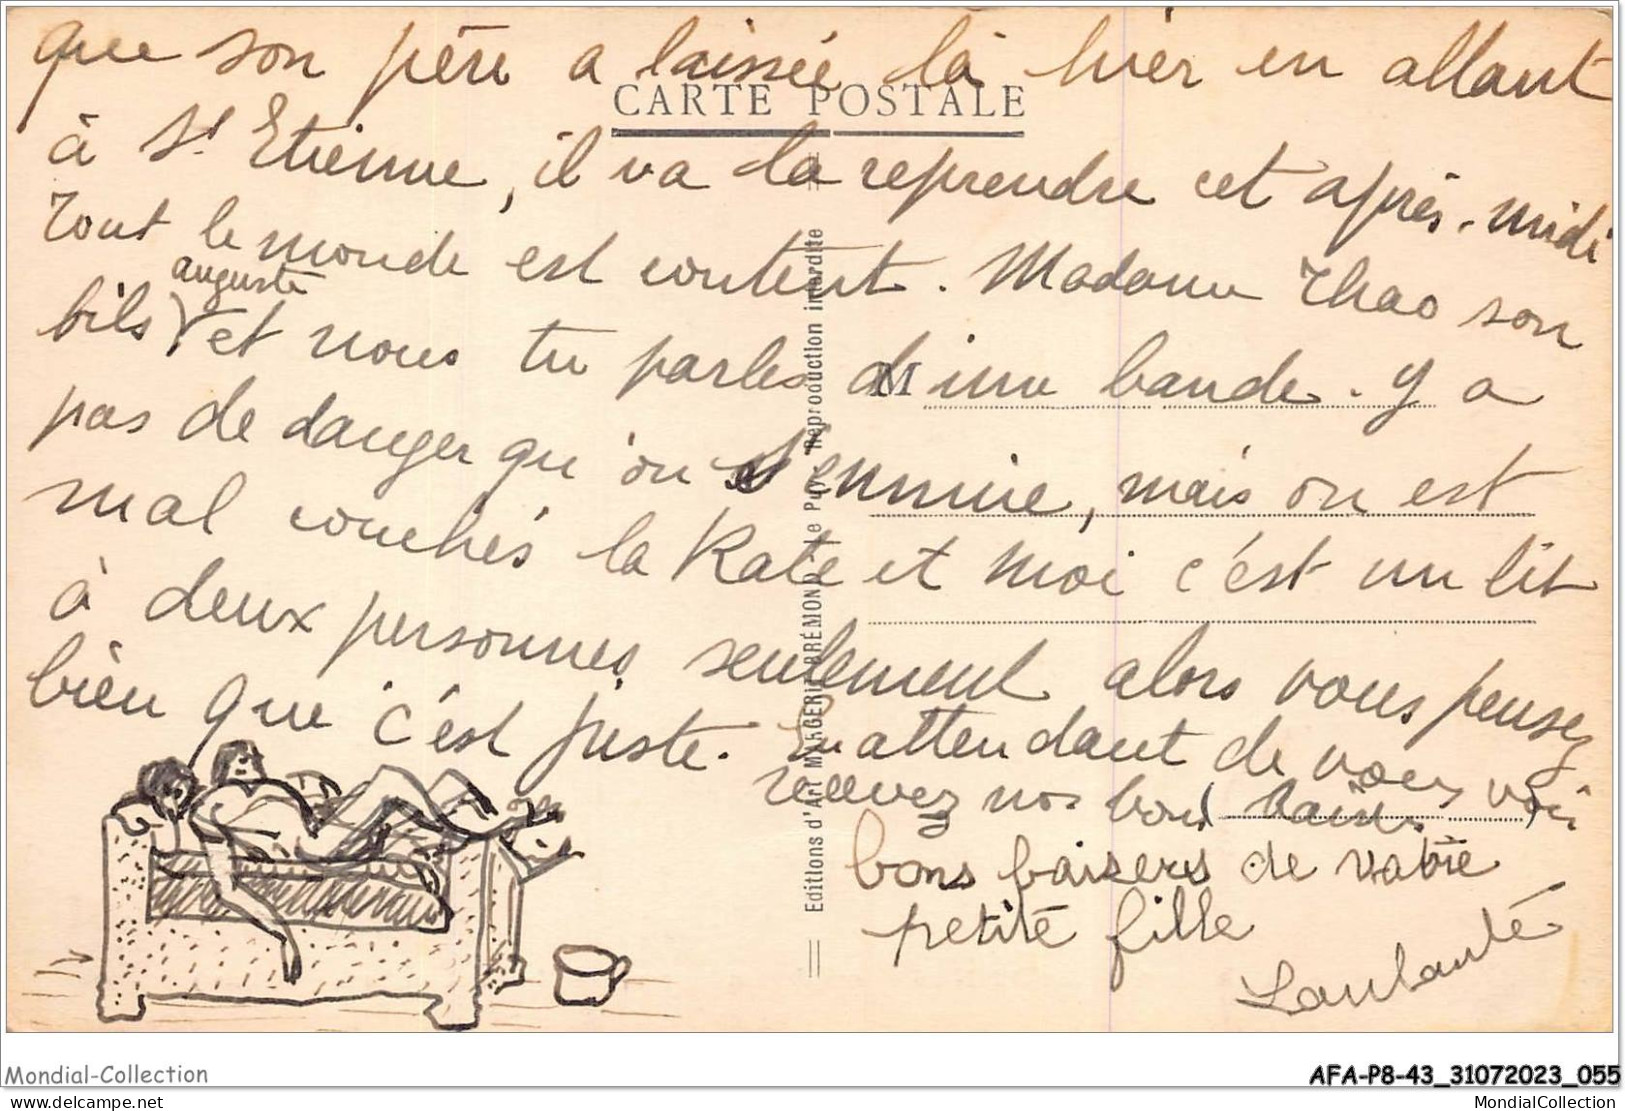 que son père a laissée là hier en allant
CARTE POSTALE
à St Etienne, il va la reprendre cet après-midi
Tout le monde est content. Madame Thao son
auguste
bils et nous tu parles d'une bande. Y a
pas de danger qu'on s'ennuie, mais on est
mal couchés la Kate et moi c'est un lit
à deux personnes seulement alors vous pensez
bien que c'est juste. En attendant de vous voir
recevez nos bons (bains)
bons baisers de votre
petite fille
Editions d'Art MARGERIT-BRÉMOND, Le Puy - Reproduction interdite
Mondial-Collection
AFA-P8-43_31072023_055
delcampe.net
MondialCollection